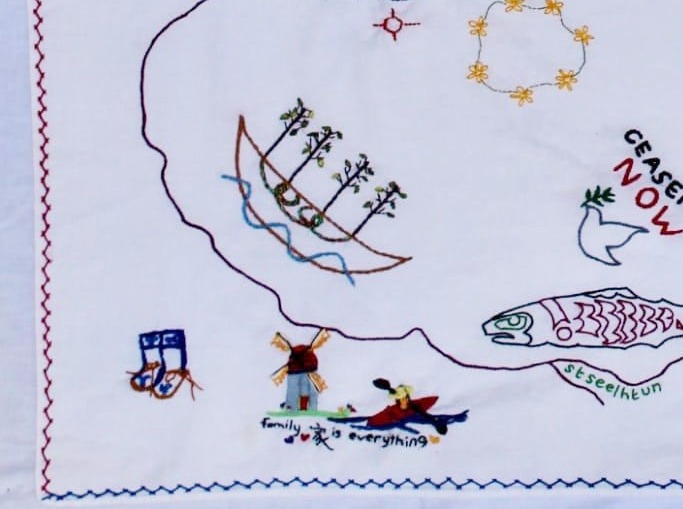 CEASEF
NOW
stseelhtun
family 家 is everything